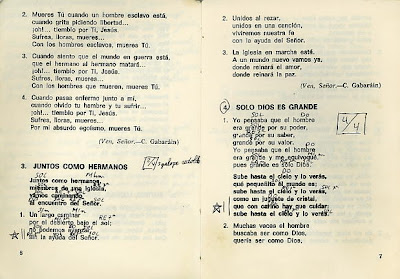 2. Mueres Tú cuando un hombre esclavo está,
cuando grita pidiendo libertad...
¡oh!... tiemblo por Ti, Jesús.
Sufres, lloras, mueres...
Con los hombres esclavos, mueres Tú.
3. Cuando siento que el mundo en guerra está,
que el hermano al hermano matará...
¡oh!... tiemblo por Ti, Jesús.
Sufres, lloras, mueres...
Con los hombres que mueren, mueres Tú.
4. Cuando pasas enfermo junto a mí,
cuando olvido tu hombre y tu sufrir...
¡oh!... tiemblo por Ti, Jesús.
Sufres, lloras, mueres...
Por mi absurdo egoísmo, mueres Tú.
3. JUNTOS COMO HERMANOS
SOL MIm
Juntos como hermanos,
miembros de una Iglesia,
vamos caminando
al encuentro del Señor.
1. Un largo caminar
por el desierto bajo el sol;
no podemos avanzar
sin la ayuda del Señor.
6
2. Unidos al rezar,
unidos en una canción,
viviremos nuestra fe
con la ayuda del Señor.
3. La Iglesia en marcha está.
A un mundo nuevo vamos ya,
donde reinará el amor,
donde reinará la paz.
(Ven, Señor.—C. Gabaráin)
4. SOLO DIOS ES GRANDE
4/4
SOL DO
1. Yo pensaba que el hombre
era grande por su poder,
grande por su saber,
grande por su valor.
Yo pensaba que el hombre
era grande y me equivoqué,
pues grande es sólo Dios.
Sube hasta el cielo y lo verás,
qué pequeñito el mundo es;
sube hasta el cielo y lo verás,
como un juguete de cristal,
que con cariño hay que cuidar;
sube hasta el cielo y lo verás.
2. Muchas veces el hombre
buscaba ser como Dios,
quería ser como Dios,
7